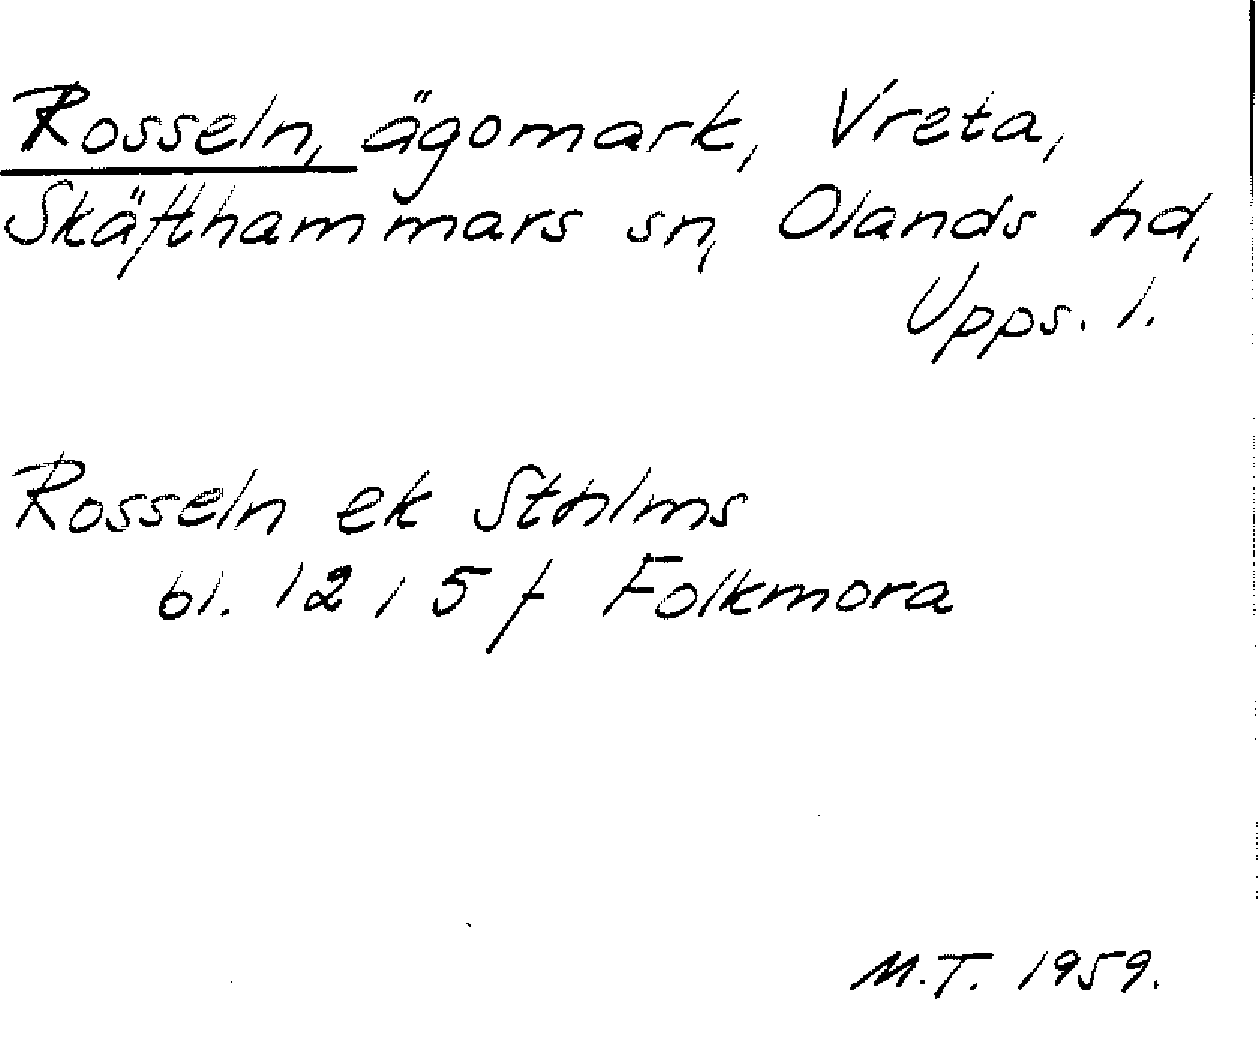 Rosseln, ägomark, Vreta,
Skäfthammars sn, Olands hd,
Upps. l.
Rosseln ek Sthlms
bl. 12 1 5 f Folkmora
M.T. 1959.